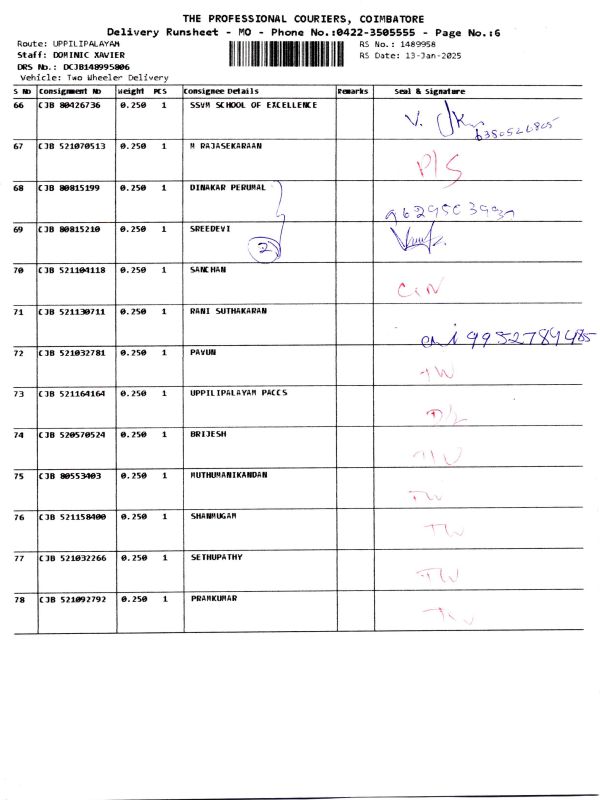 THE PROFESSIONAL COURIERS, COIMBATORE
Delivery Runsheet - MO - Phone No.:0422-3505555 - Page No.:6
Route: UPPILIPALAYAM RS No.: 1489958
Staff: DOMINIC XAVIER RS Date: 13-Jan-2025
DRS No.: DCJB148995806
Vehicle: Two Wheeler Delivery
S No Consignment No Weight PCS Consignee Details Remarks Seal & Signature
66 CJB 80426736 0.250 1 SSVM SCHOOL OF EXCELLENCE
67 CJB 521070513 0.250 1 M RAJASEKARAAN P/S
68 CJB 80815199 0.250 1 DINAKAR PERUMAL
69 CJB 80815210 0.250 1 SREEDEVI
2
70 CJB 521104118 0.250 1 SANCHAN
71 CJB 521130711 0.250 1 RANI SUTHAKARAN
72 CJB 521032781 0.250 1 PAVUN TW
73 CJB 521164164 0.250 1 UPPILIPALAYAM PACCS
74 CJB 520570524 0.250 1 BRIJESH
75 CJB 80553403 0.250 1 MUTHUMANIKANDAN TW
76 CJB 521158400 0.250 1 SHANMUGAM TW
77 CJB 521032266 0.250 1 SETHUPATHY TW
78 CJB 521092792 0.250 1 PRAMKUMAR